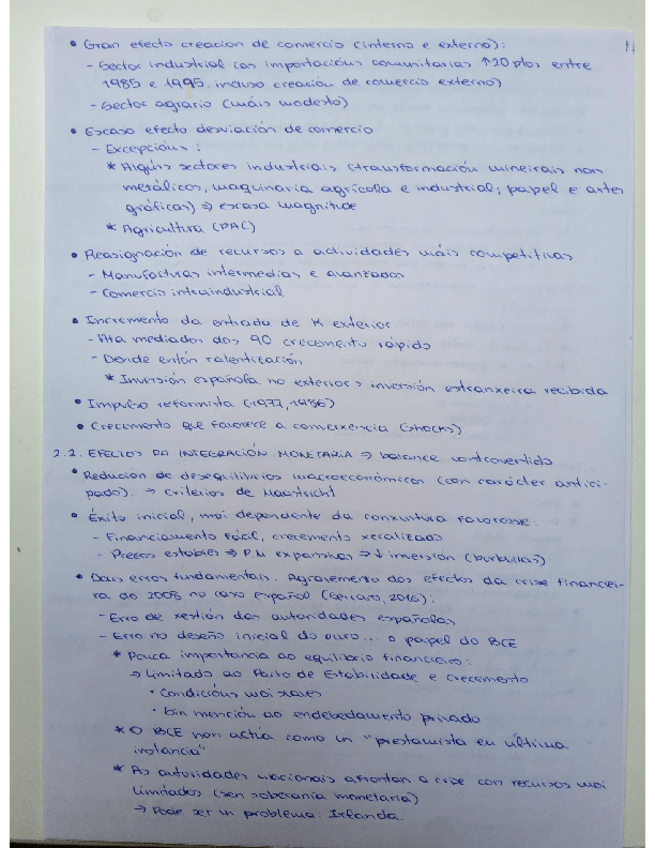 • Gran efecto creacion de comercio (interno e externo):
- Sector industrial (as importacións comunitarias ↑20 ptos entre
1985 e 1995. incluso creación de comercio externo)
- Sector agrario (máis modesto)
• Escaso efecto desviación de comercio
- Excepcións:
* Algúns sectores industriais (transformación minerais non
metálicos, maquinaria agrícola e industrial; papel e artes
gráficas) ⇒ escasa magnitude
* Agricultura (PAC)
• Reasignación de recursos a actividades máis competitivas
- Manufacturas intermedias e avanzadas
- Comercio intraindustrial
• Incremento da entrada de K exterior
- Ata mediados dos 90 crecemento rápido
- Dende entón ralentización
* Inversión española no exterior > inversión estranxeira recibida
• Impulso reformista (1977, 1986)
• Crecemento que favorece a converxencia (shocks)
2.2. EFECTOS DA INTEGRACIÓN MONETARIA ⇒ balance controvertido
• Redución de desequilibrios macroeconómicos (con carácter antici-
pado). → Criterios de Maastricht
• Éxito inicial, moi dependente da conxuntura favorable:
- Financiamento fácil, crecemento xeralizado
- Prezos estables ⇒ P.M expansivas ⇒ ↓ inversión (burbullas)
• Dous erros fundamentais. Agravamento dos efectos da crise financei-
ra do 2008 no caso español (Serrano, 2016):
- Erro de xestión das autoridades españolas
- Erro no deseño inicial do euro... o papel do BCE
* Pouca importancia ao equilibrio financieiro:
→ Limitado ao Pacto de Estabilidade e Crecemento
· Condicións moi laxas
· Sin mención ao endebedamento privado
* O BCE non actúa como un "prestamista en última
instancia"
* As autoridades nacionais afrontan a crise con recursos moi
limitados (sen soberanía monetaria)
→ Pode ser un problema: Irlanda.